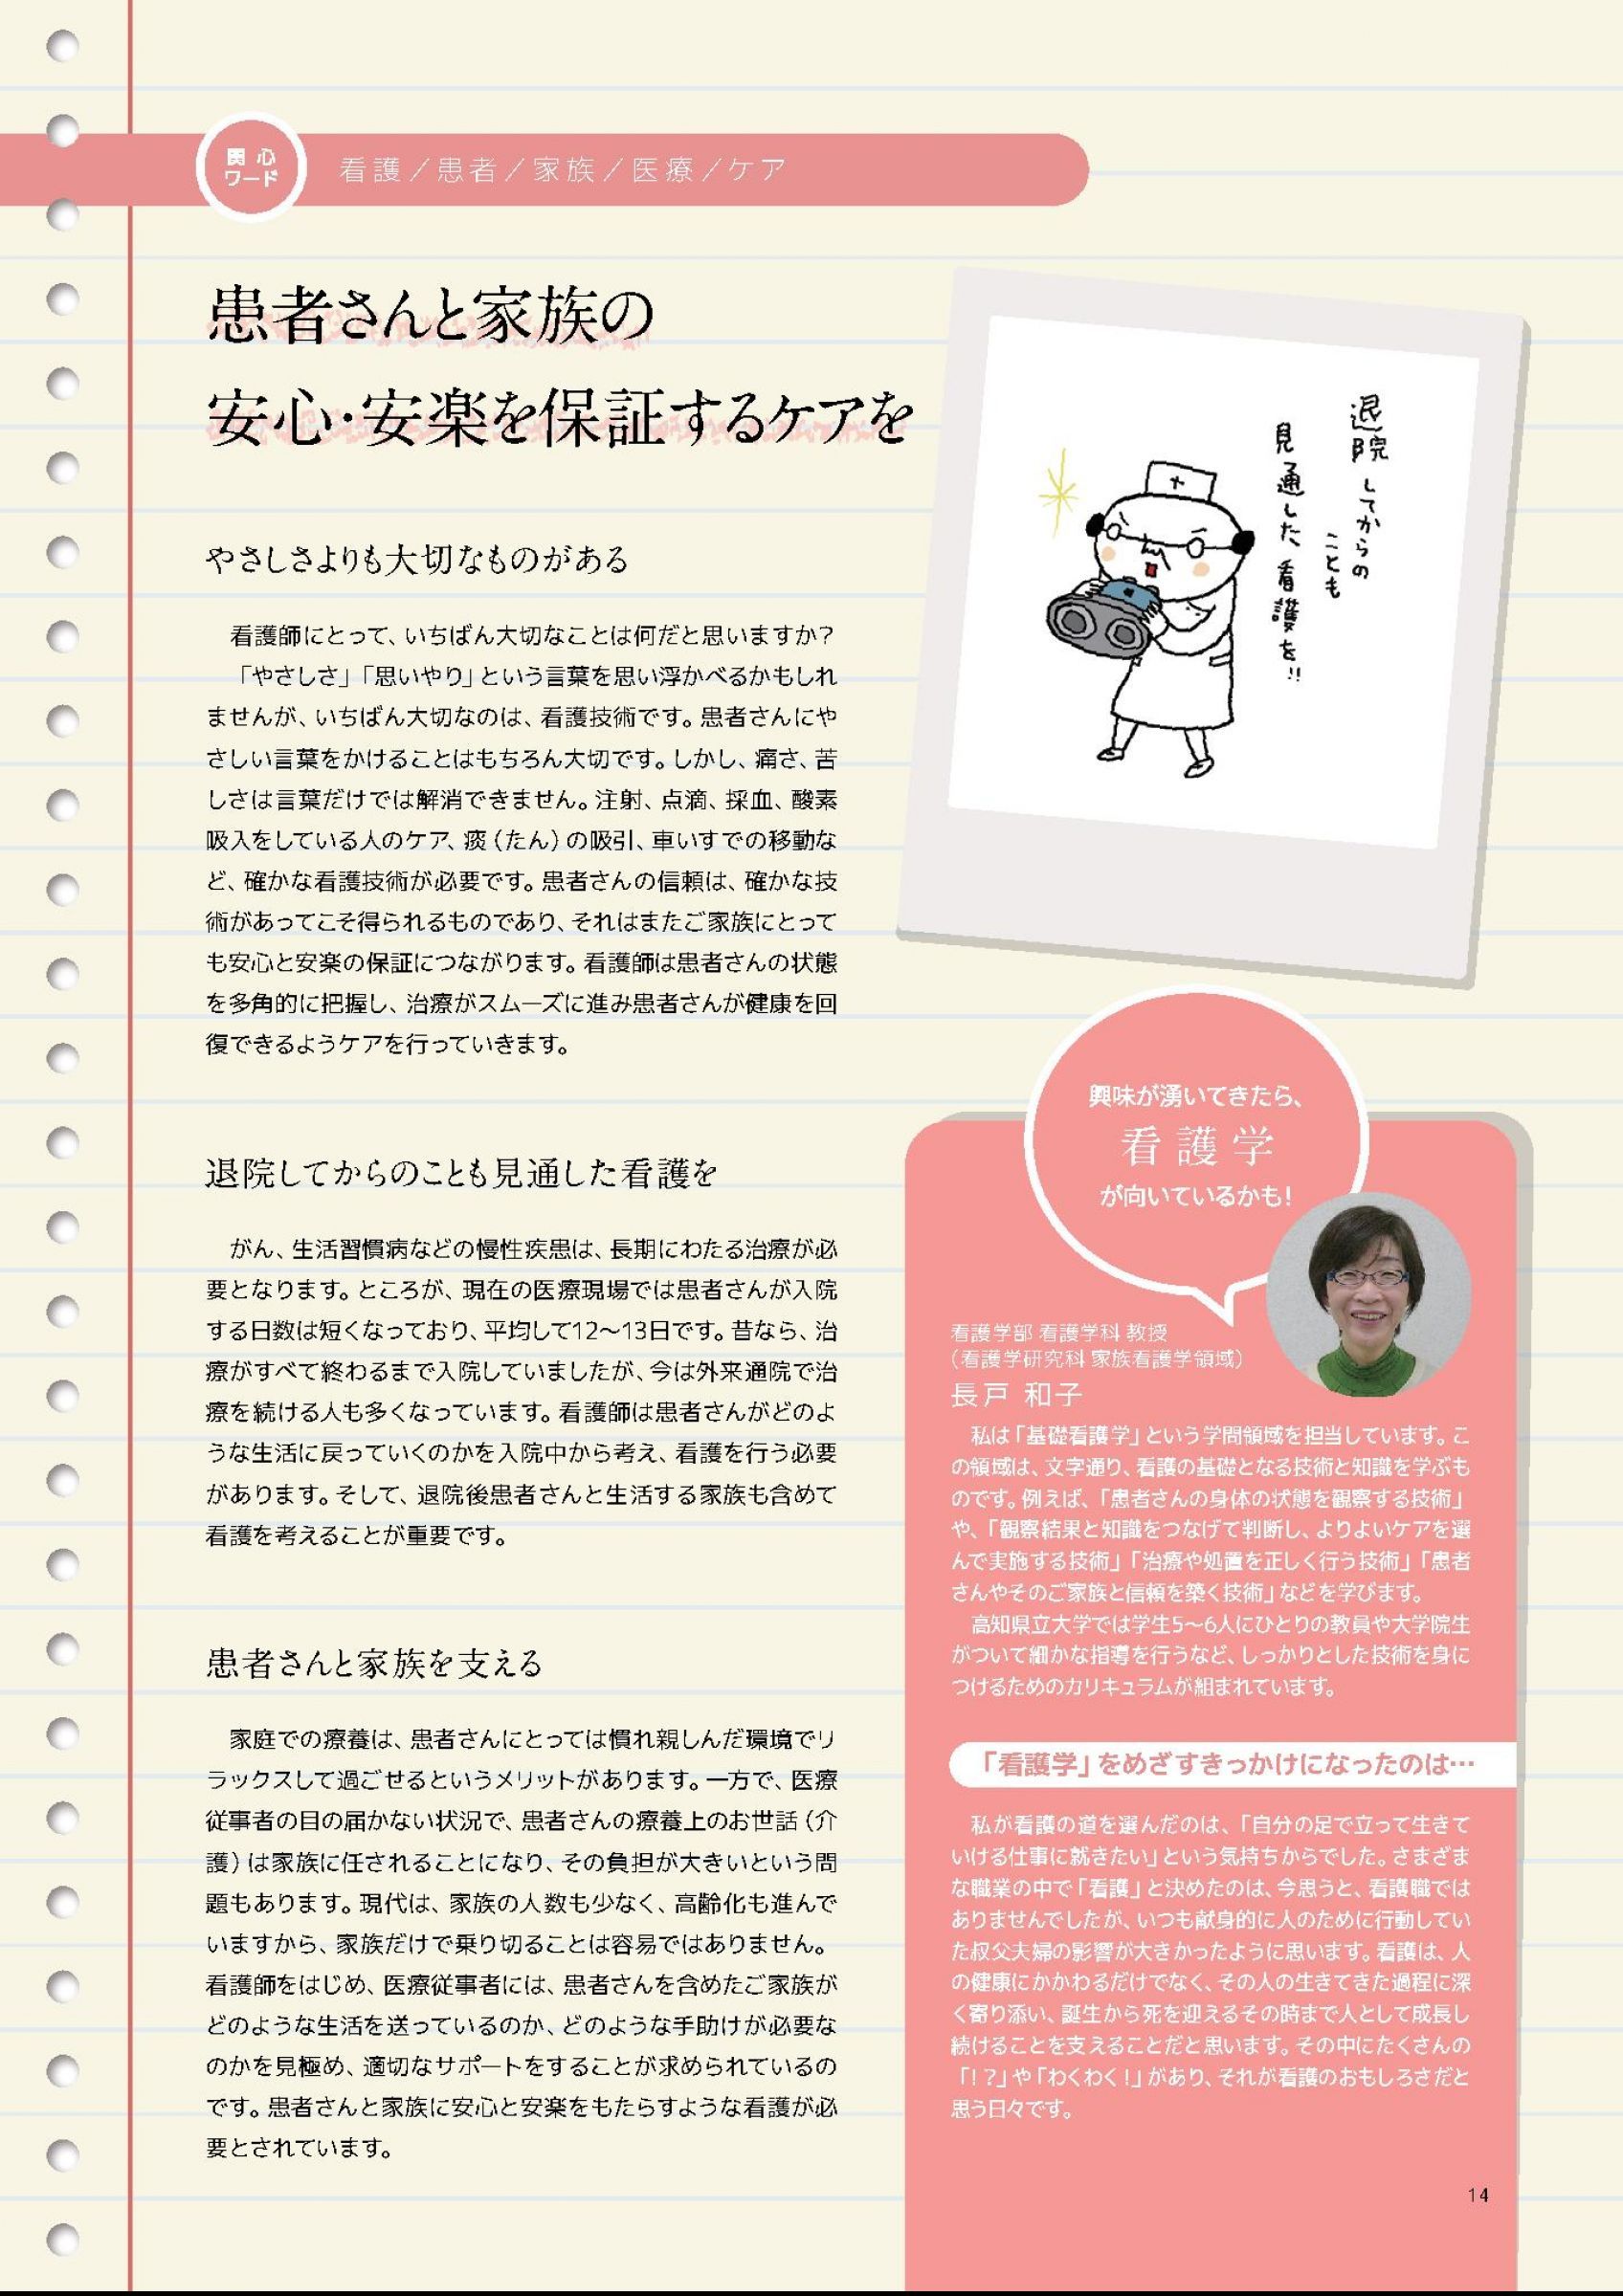 関心
ワード
看護／患者／家族／医療／ケア
患者さんと家族の
安心・安楽を保証するケアを
やさしさよりも大切なものがある
看護師にとって、いちばん大切なことは何だと思いますか？
「やさしさ」「思いやり」という言葉を思い浮かべるかもしれ
ませんが、いちばん大切なのは、看護技術です。患者さんにや
さしい言葉をかけることはもちろん大切です。しかし、痛さ、苦
しさは言葉だけでは解消できません。注射、点滴、採血、酸素
吸入をしている人のケア、痰（たん）の吸引、車いすでの移動な
ど、確かな看護技術が必要です。患者さんの信頼は、確かな技
術があってこそ得られるものであり、それはまたご家族にとって
も安心と安楽の保証につながります。看護師は患者さんの状態
を多角的に把握し、治療がスムーズに進み患者さんが健康を回
復できるようケアを行っていきます。
退院してからのことも見通した看護を
がん、生活習慣病などの慢性疾患は、長期にわたる治療が必
要となります。ところが、現在の医療現場では患者さんが入院
する日数は短くなっており、平均して12〜13日です。昔なら、治
療がすべて終わるまで入院していましたが、今は外来通院で治
療を続ける人も多くなっています。看護師は患者さんがどのよ
うな生活に戻っていくのかを入院中から考え、看護を行う必要
があります。そして、退院後患者さんと生活する家族も含めて
看護を考えることが重要です。
患者さんと家族を支える
家庭での療養は、患者さんにとっては慣れ親しんだ環境でリ
ラックスして過ごせるというメリットがあります。一方で、医療
従事者の目の届かない状況で、患者さんの療養上のお世話（介
護）は家族に任されることになり、その負担が大きいという問
題もあります。現代は、家族の人数も少なく、高齢化も進んで
いますから、家族だけで乗り切ることは容易ではありません。
看護師をはじめ、医療従事者には、患者さんを含めたご家族が
どのような生活を送っているのか、どのような手助けが必要な
のかを見極め、適切なサポートをすることが求められているの
です。患者さんと家族に安心と安楽をもたらすような看護が必
要とされています。
退院してからの
ことも
見通した看護を!!
興味が湧いてきたら、
看護学
が向いているかも！
看護学部 看護学科 教授
（看護学研究科 家族看護学領域）
長戸 和子
私は「基礎看護学」という学問領域を担当しています。こ
の領域は、文字通り、看護の基礎となる技術と知識を学ぶも
のです。例えば、「患者さんの身体の状態を観察する技術」
や、「観察結果と知識をつなげて判断し、よりよいケアを選
んで実施する技術」「治療や処置を正しく行う技術」「患者
さんやそのご家族と信頼を築く技術」などを学びます。
高知県立大学では学生5〜6人にひとりの教員や大学院生
がついて細かな指導を行うなど、しっかりとした技術を身に
つけるためのカリキュラムが組まれています。
「看護学」をめざすきっかけになったのは…
私が看護の道を選んだのは、「自分の足で立って生きて
いける仕事に就きたい」という気持ちからでした。さまざま
な職業の中で「看護」と決めたのは、今思うと、看護職では
ありませんでしたが、いつも献身的に人のために行動してい
た叔父夫婦の影響が大きかったように思います。看護は、人
の健康にかかわるだけでなく、その人の生きてきた過程に深
く寄り添い、誕生から死を迎えるその時まで人として成長し
続けることを支えることだと思います。その中にたくさんの
「！？」や「わくわく！」があり、それが看護のおもしろさだと
思う日々です。
14